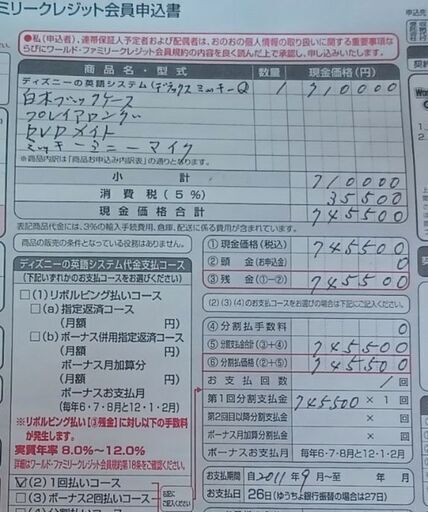 ミリークレジット会員申込書
●私(申込者)、連帯保証人予定者および配偶者は、おのおの個人情報の取り扱いに関する重要事項な
らびにワールド・ファミリークレジット会員規約の内容を良く読んだ上で承認し、申し込みいたします。
商品名・型式 数量 現金価格(円)
ディズニーの英語システム(デラックス ミッキーQ 1 710000
白木ブックケース
プレイアロング
DVDメイト
ミッキーミニーマイク
※商品内訳は「商品お申込み内訳表」の通りとなります。
小計 710000
消費税(5%) 35500
現金価格合計 745500
表記商品代金には、3%の輸入手続費用、倉庫、配送に係る費用が含まれています。
商品の販売の条件となっている役務はありません。
ディズニーの英語システム代金支払コース
(下記いずれかのお支払コースをお選びください)
□(1)リボルビング払いコース
□(a)指定返済コース
(月額 円)
□(b)ボーナス併用指定返済コース
(月額 円)
ボーナス月加算分
(月額 円)
ボーナスお支払月
(毎年6・7・8月と12・1・2月)
※リボルビング払い(③残金)に対し以下の手数料
が発生します。
実質年率 8.0%〜12.0%
詳細はワールド・ファミリークレジット会員規約第18条をご確認ください。
☑(2)1回払いコース
□(3)ボーナス2回払いコース
□(4)分割払いコース
左記に
ご記入ください
①現金価格(税込) 745500
②頭金(お申込金) 0
③残金(①−②) 745500
(2)(3)(4)のお支払コースをお選びの場合は下記にご記入ください。
④分割払手数料 0
⑤分割支払金合計(③+④) 745500
⑥分割価格(②+⑤) 745500
お支払回数 1回
第1回分割支払金 745500 × 1 回
第2回目以降分割支払金 × 回
ボーナス月加算分割金 × 回
ボーナスお支払月 毎年6・7・8月と12・1・2月
お支払期間 自2011年9月〜至 年 月
お支払日 26日(ゆうちょ銀行振替の場合は27日)
申込先